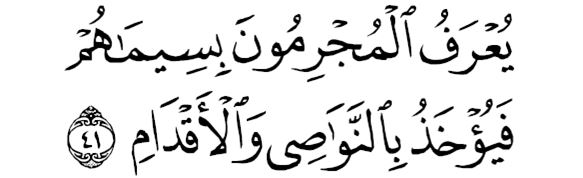 يُعْرَفُ ٱلْمُجْرِمُونَ بِسِيمَٰهُمْ
فَيُؤْخَذُ بِٱلنَّوَٰصِى وَٱلْأَقْدَامِ ٤١